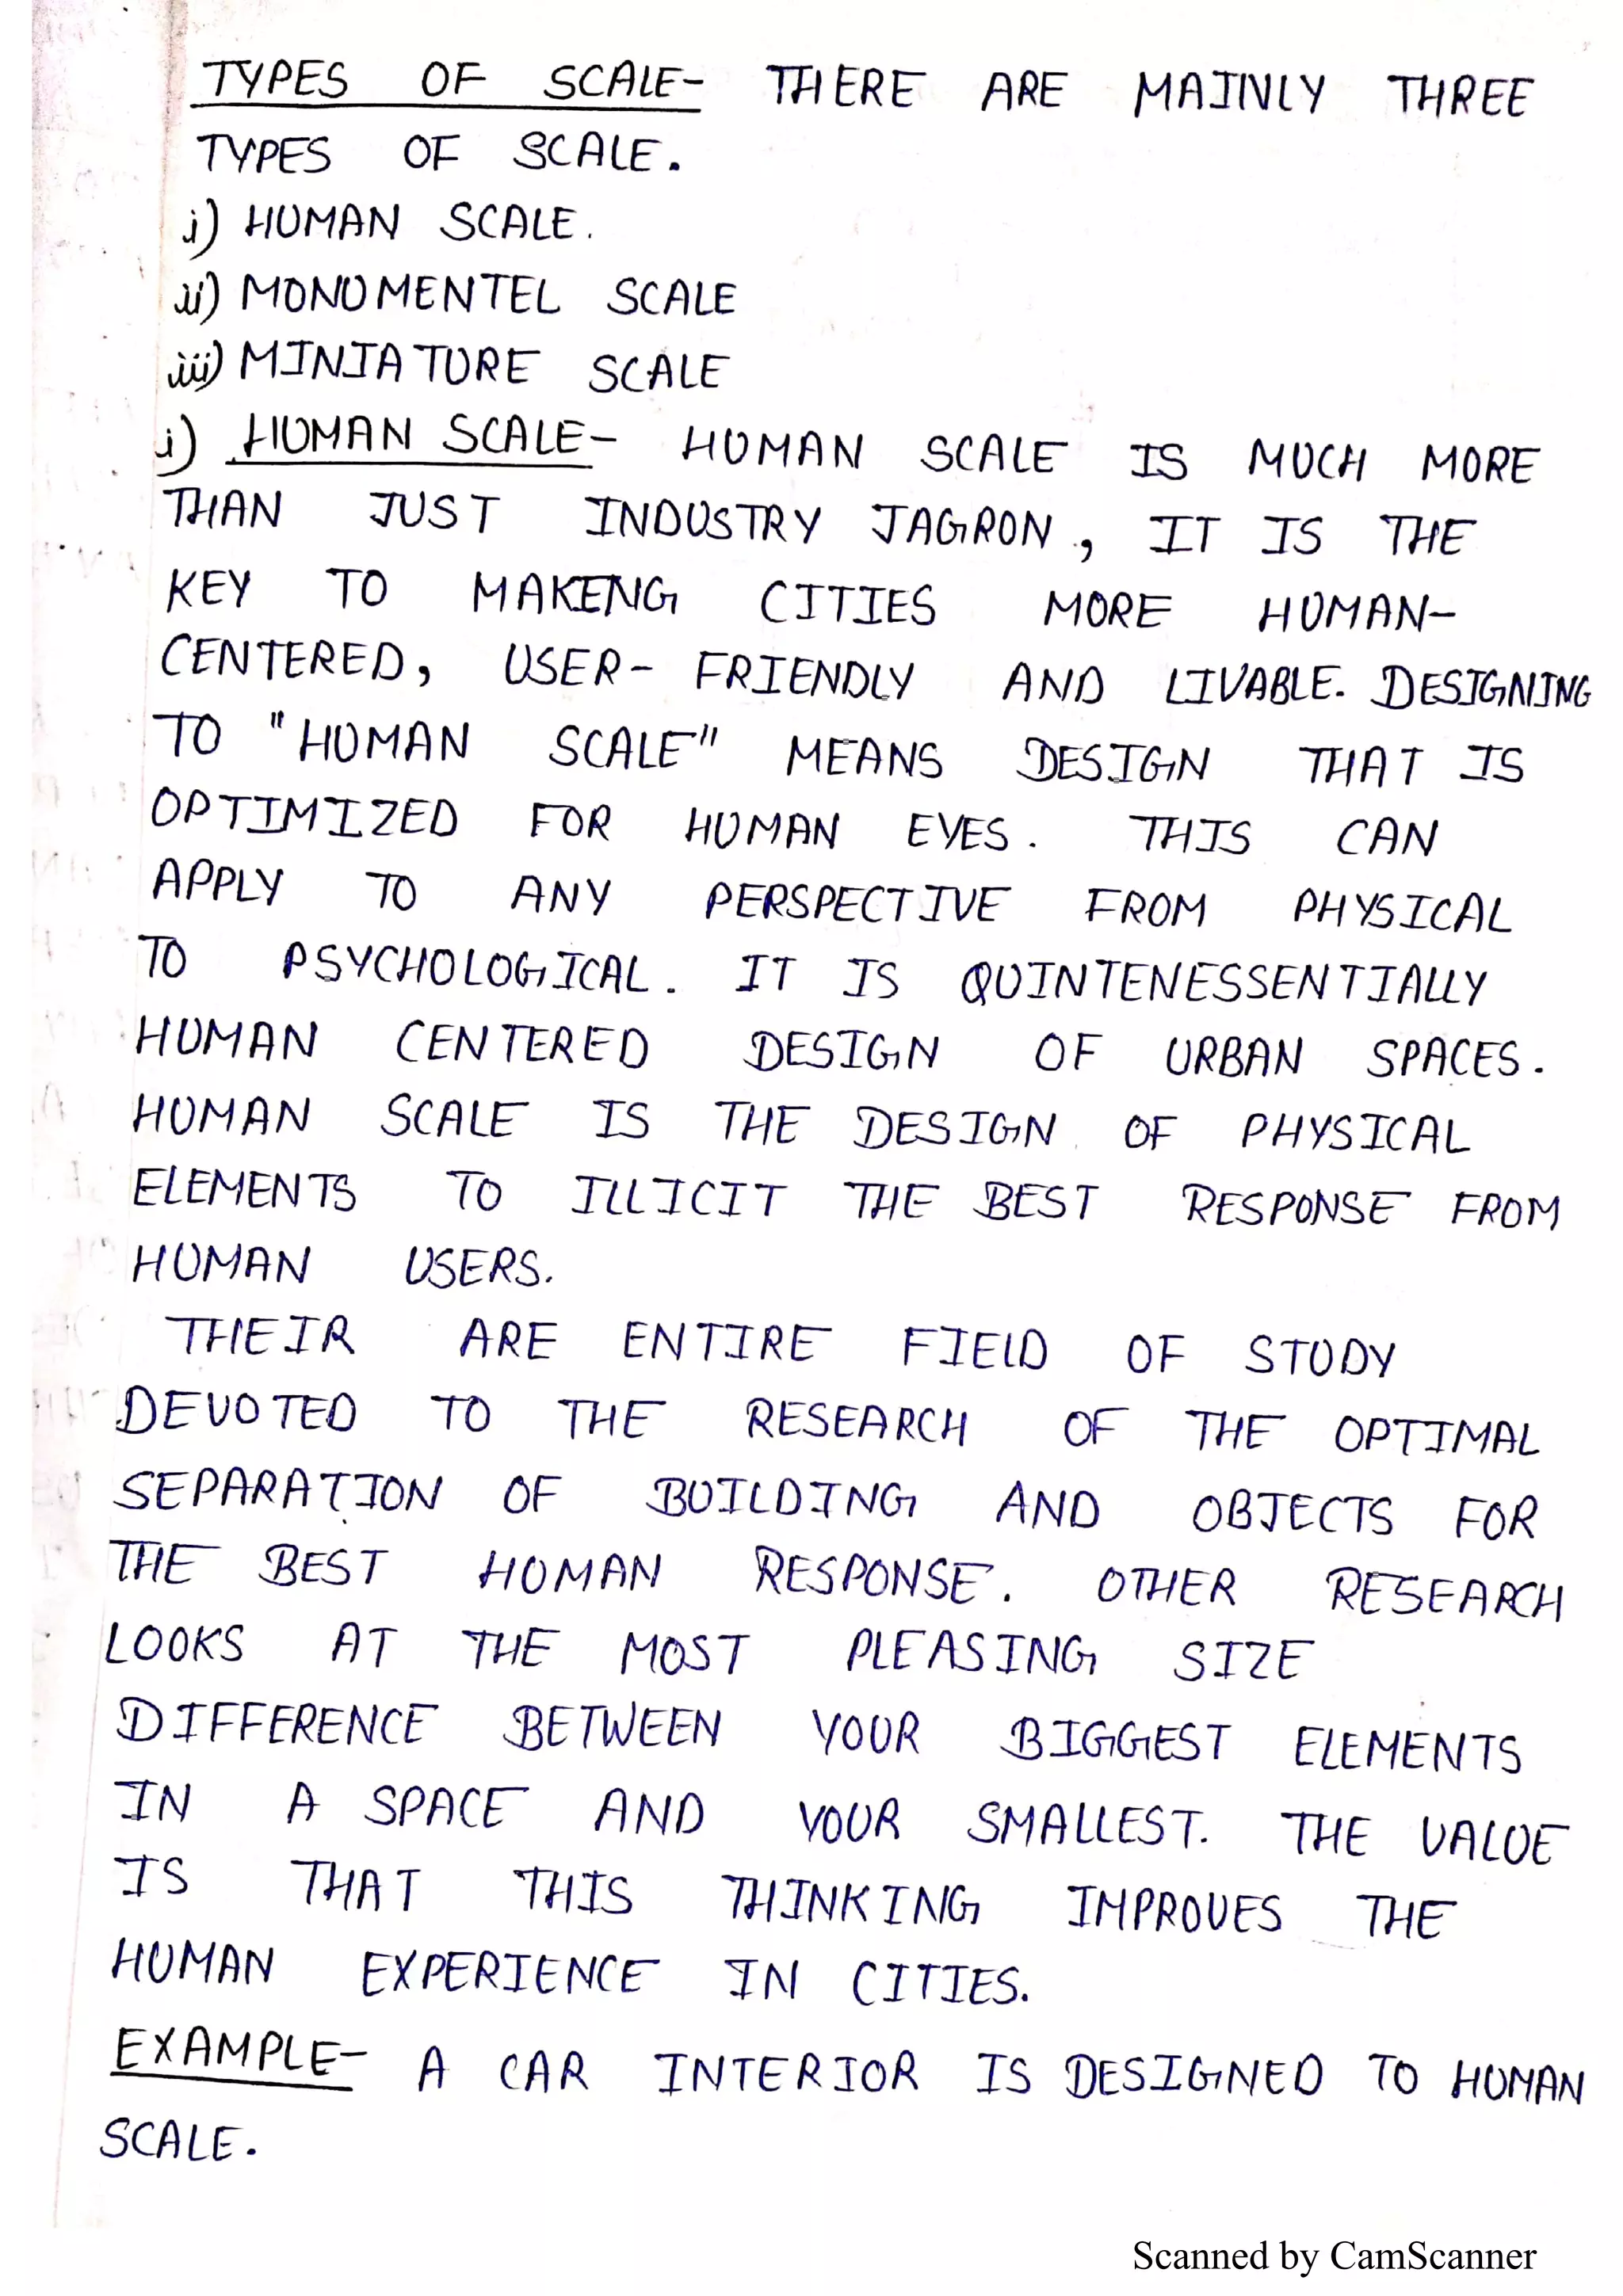 TYPES OF SCALE- THERE ARE MAINLY THREE
TYPES OF SCALE.
i) HUMAN SCALE.
ii) MONUMENTEL SCALE
iii) MINIATURE SCALE
i) HUMAN SCALE- HUMAN SCALE IS MUCH MORE
THAN JUST INDUSTRY JAGRON, IT IS THE
KEY TO MAKING CITIES MORE HUMAN-
CENTERED, USER- FRIENDLY AND LIVABLE. DESIGNING
TO "HUMAN SCALE" MEANS DESIGN THAT IS
OPTIMIZED FOR HUMAN EYES. THIS CAN
APPLY TO ANY PERSPECTIVE FROM PHYSICAL
TO PSYCHOLOGICAL. IT IS QUINTENESSENTIALLY
HUMAN CENTERED DESIGN OF URBAN SPACES.
HUMAN SCALE IS THE DESIGN OF PHYSICAL
ELEMENTS TO ILLICIT THE BEST RESPONSE FROM
HUMAN USERS.
THEIR ARE ENTIRE FIELD OF STUDY
DEVOTED TO THE RESEARCH OF THE OPTIMAL
SEPARATION OF BUILDING AND OBJECTS FOR
THE BEST HUMAN RESPONSE. OTHER RESEARCH
LOOKS AT THE MOST PLEASING SIZE
DIFFERENCE BETWEEN YOUR BIGGEST ELEMENTS
IN A SPACE AND YOUR SMALLEST. THE VALUE
IS THAT THIS THINKING IMPROVES THE
HUMAN EXPERIENCE IN CITIES.
EXAMPLE- A CAR INTERIOR IS DESIGNED TO HUMAN
SCALE.
Scanned by CamScanner